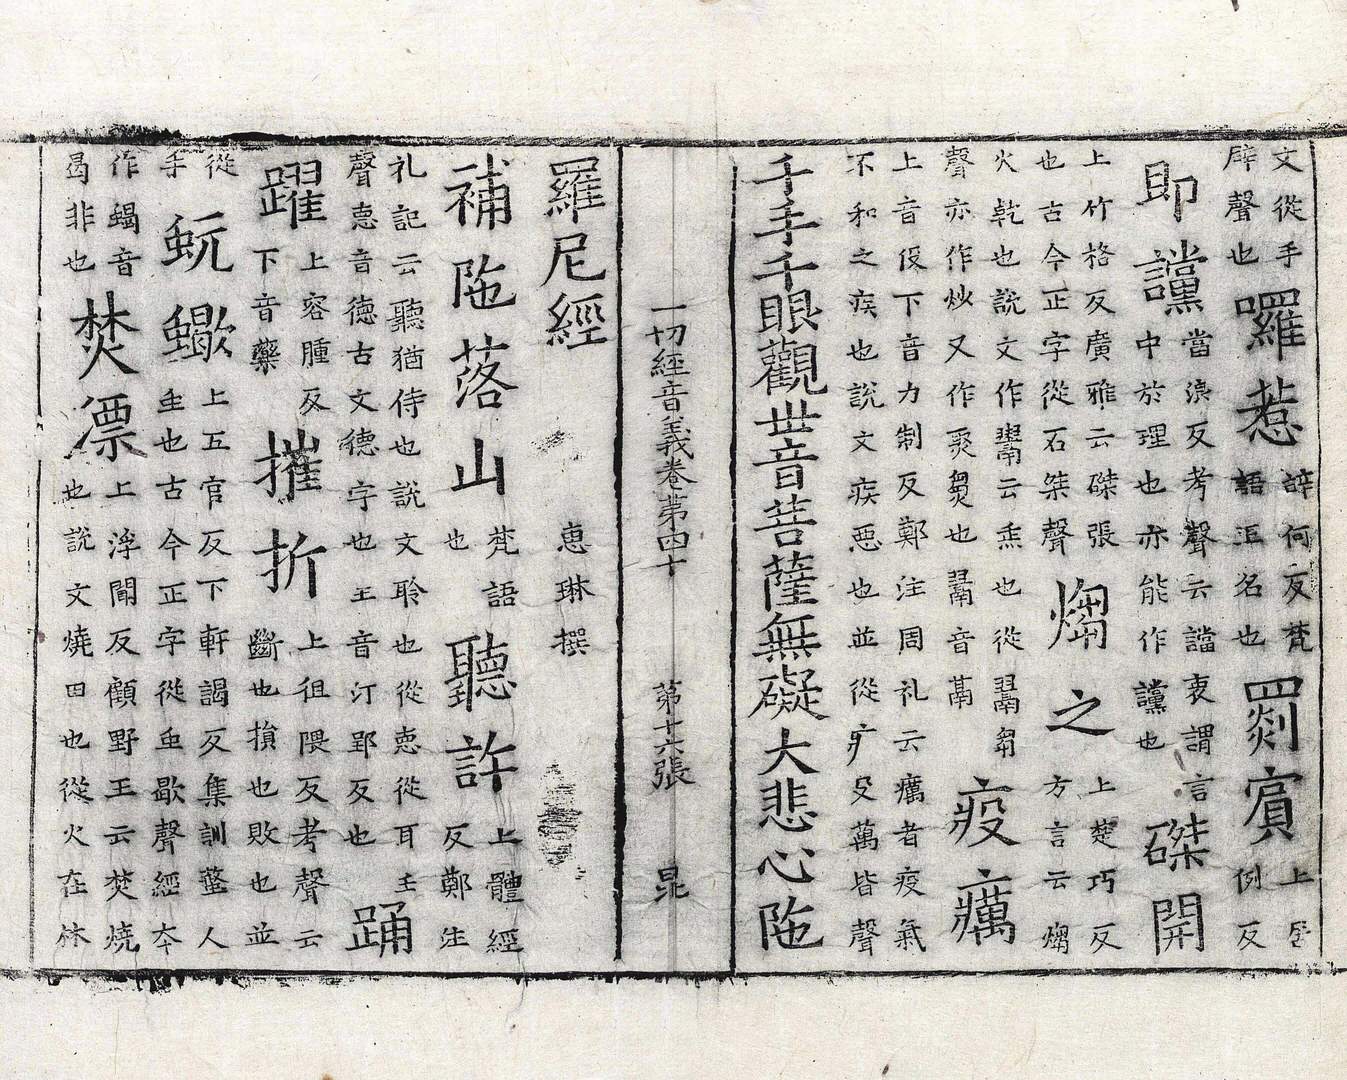 文從手
辟聲也
囉惹
辝何反梵
語王名也
罽賓
上居
例反
即讜
當浪反考聲云讜衷謂言
中於理也亦能作讜也
磔開
上竹格反廣雅云磔張
也古今正字從石桀聲
煼之
上楚巧反
方言云煼
火乾也說文作云焣也從䰜芻
聲亦作炒又作㷅也䰜音鬲
疫癘
上音役下音力制反鄭注周礼云癘者疫氣
不和之疾也說文疾惡也並從疒殳萬皆聲
千手千眼觀世音菩薩無礙大悲心陁
一切經音義卷苐四十 第十六張 昆
羅尼經 惠琳撰
補陁落山
梵語
也
聽許
上體經
反鄭注
礼記云聽猶侍也說文聆也從悳從耳𡈼
聲悳音德古文德字也𡈼音汀郢反也
踊
躍
上容腫反
下音藥
摧折
上徂隈反考聲云
斷也損也敗也並
從
手
蚖蠍
上五官反下軒謁反集訓螫人
虫也古今正字從虫歇聲經本
作蝎音
曷非也
焚漂
上浮聞反顧野王云焚燒
也說文燒田也從火在林